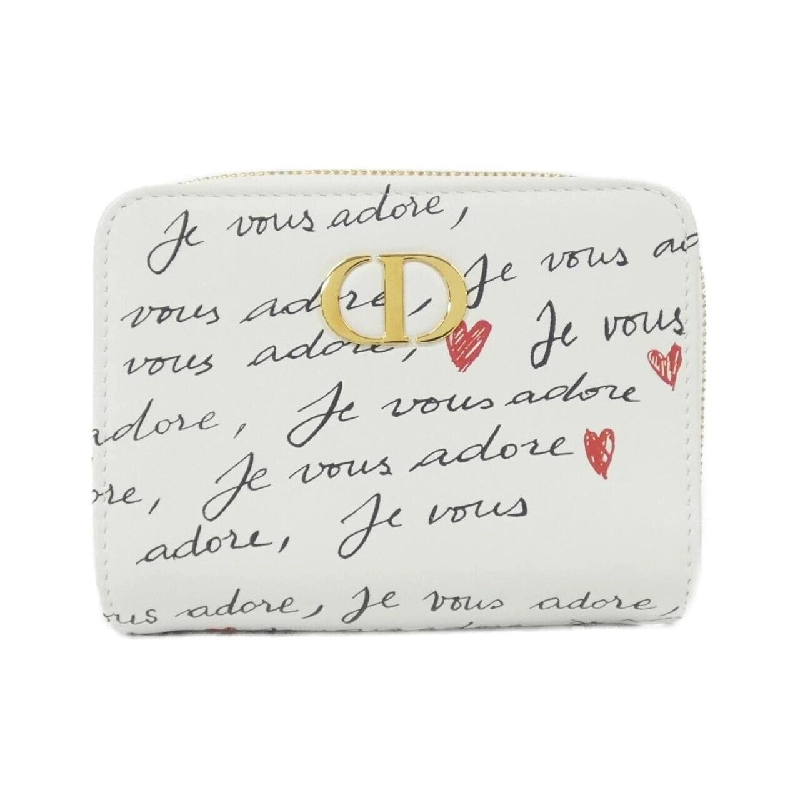 Je vous adore,
vous adore, Je vous ad
vous adore, Je vous
adore, Je vous adore
ore, Je vous adore
adore, Je vous
ous adore, Je vous adore,
CD